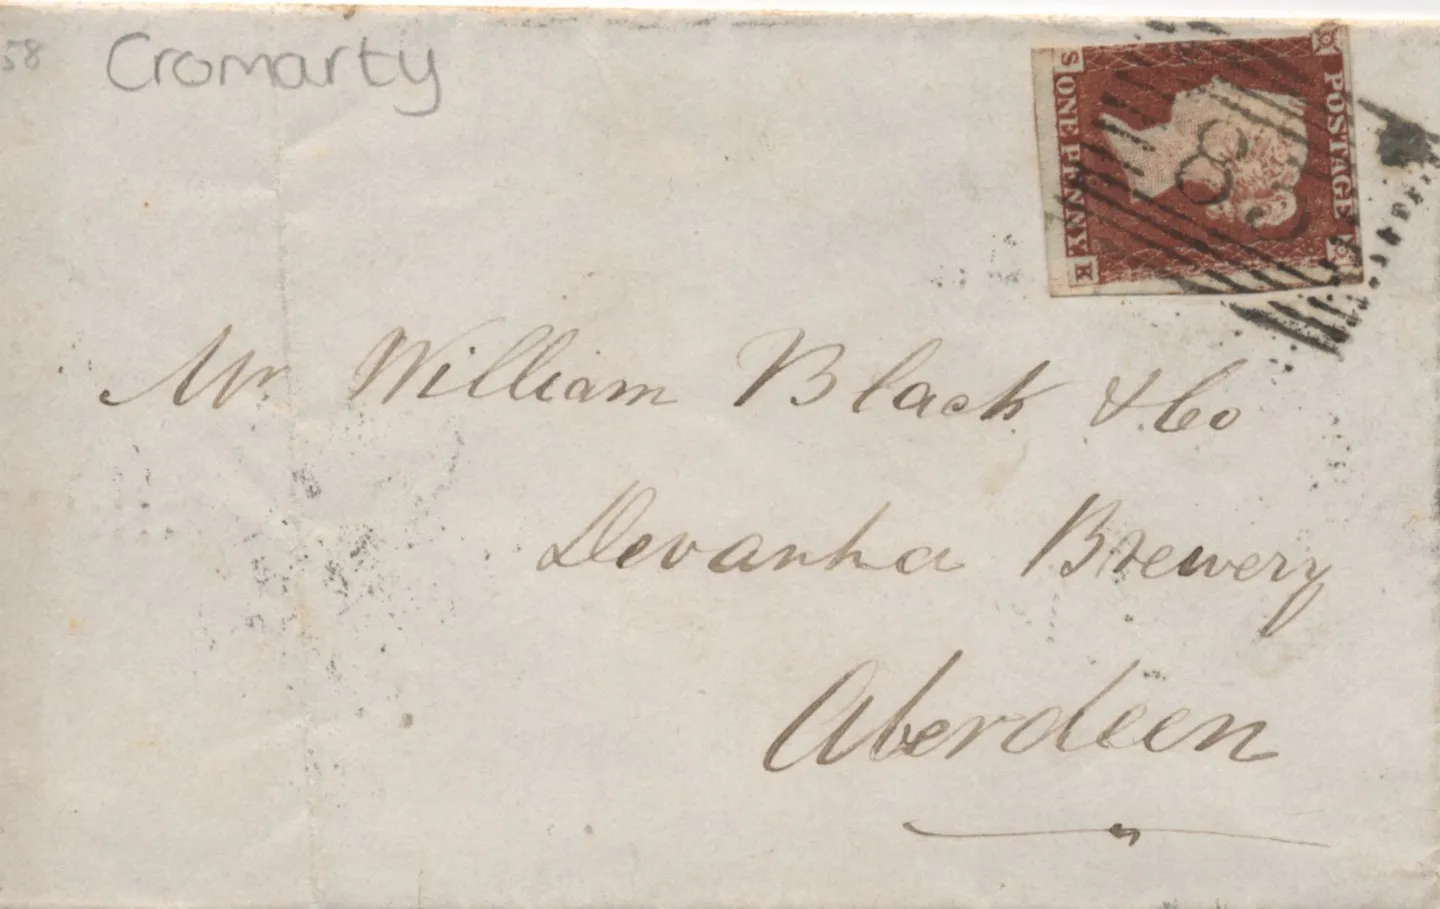 58 Cromarty
POSTAGE
S ONE PENNY K
8
Mr William Black & Co
Devanha Brewery
Aberdeen